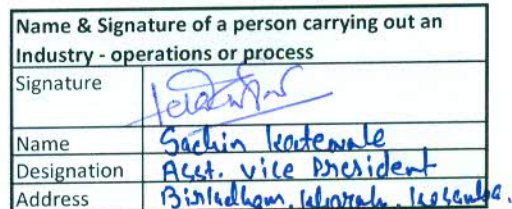 Name & Signature of a person carrying out an
Industry - operations or process
Signature
Name Sachin
Designation Asst. Vice President
Address Birladham,